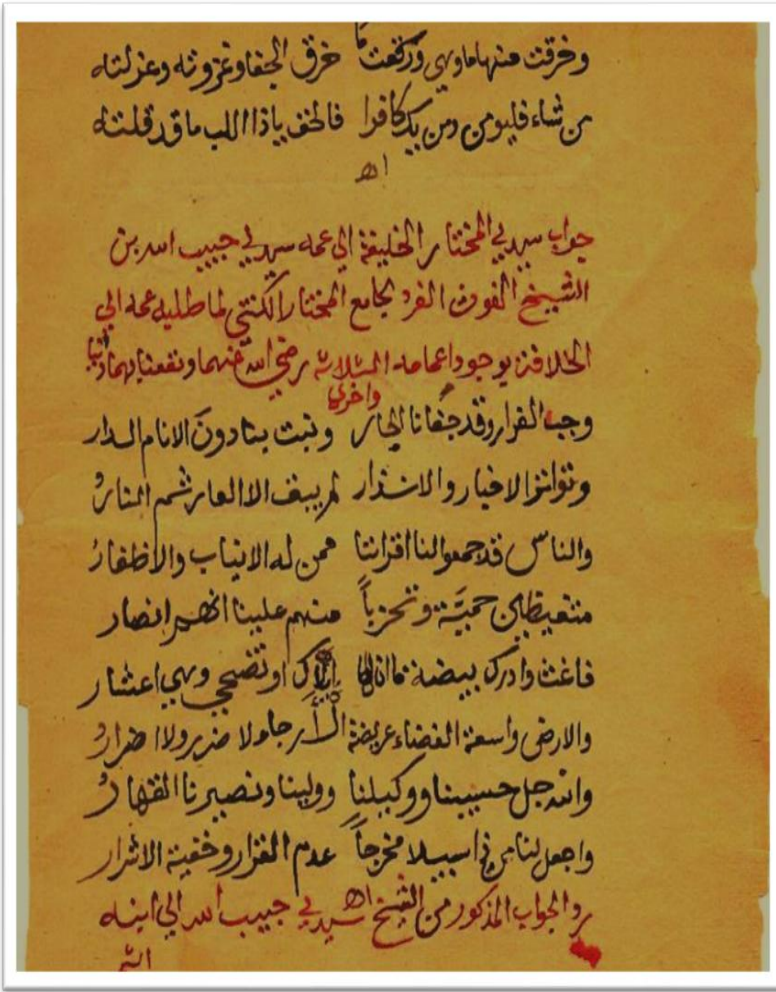 وخرقت منها ما وهى ورقعت ما خرق الجفا وغزوته وعزلته
من شاء فليومن ومن يك كافرا فالحق ياذا اللب ما قد قلته
اهـ
جواب سيدي المختار الخليفة الي عمه سيدي حبيب الله بن
الشيخ الغوث الفرد الجامع المختار الكنتي لما طلبه عمه الي
الخلافة بوجود اعمامه الثلاثة رضي الله عنهما ونفعنا بهما دنيا
واخرى
وجب الفرار وقد جفانا الجار ونبت بنا دون الانام الدار
وتواتر الاخبار والانذار لم يبق الا العار ثم النار
والناس قد جمعوا لنا اقراننا ممن له الانياب والاظفار
متغيظين حمية وتحزباً منهم علينا انهم انصار
فاغث وادرك بيضة او تضحي وهي اعشار
والارض واسعة الفضاء عريضة الأرجاء لا ضرر ولا اضرار
والله جل حسيبنا ووكيلنا وولينا ونصيرنا القهار
واجعل لنا من ذا سبيلا مخرجاً عدم القرار وخفية الاشرار
اهـ
رد الجواب المذكور من الشيخ سيدي حبيب الله الي ابنه